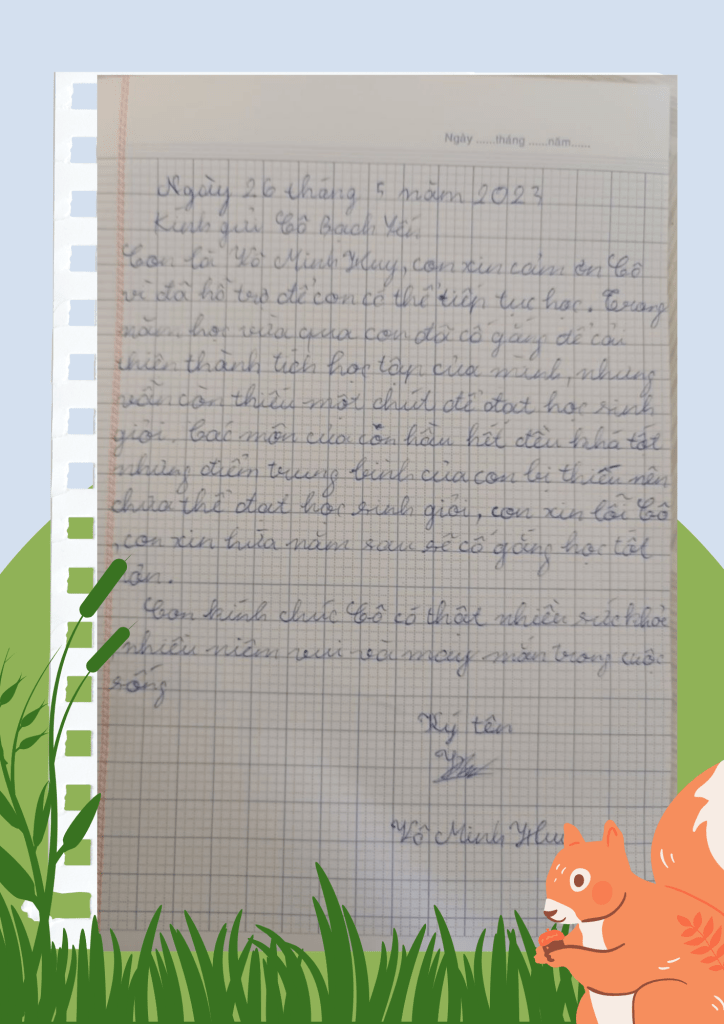 Ngày ......tháng ......năm......
Ngày 26 tháng 5 năm 2023
Kính gửi Cô Bạch Yến
Con là Võ Minh Huy, con xin cảm ơn Cô
vì đã hỗ trợ để con có thể tiếp tục học. Trong
năm học vừa qua con đã cố gắng để cải
thiện thành tích học tập của mình, nhưng
vẫn còn thiếu một chút để đạt học sinh
giỏi. Các môn của con hầu hết đều khá tốt
nhưng điểm trung bình của con bị thiếu nên
chưa thể đạt học sinh giỏi, con xin lỗi Cô
, con xin hứa năm sau sẽ cố gắng học tốt
hơn.
Con kính chúc Cô có thật nhiều sức khỏe
nhiều niềm vui và may mắn trong cuộc
sống
Ký tên
Huy
Võ Minh Huy